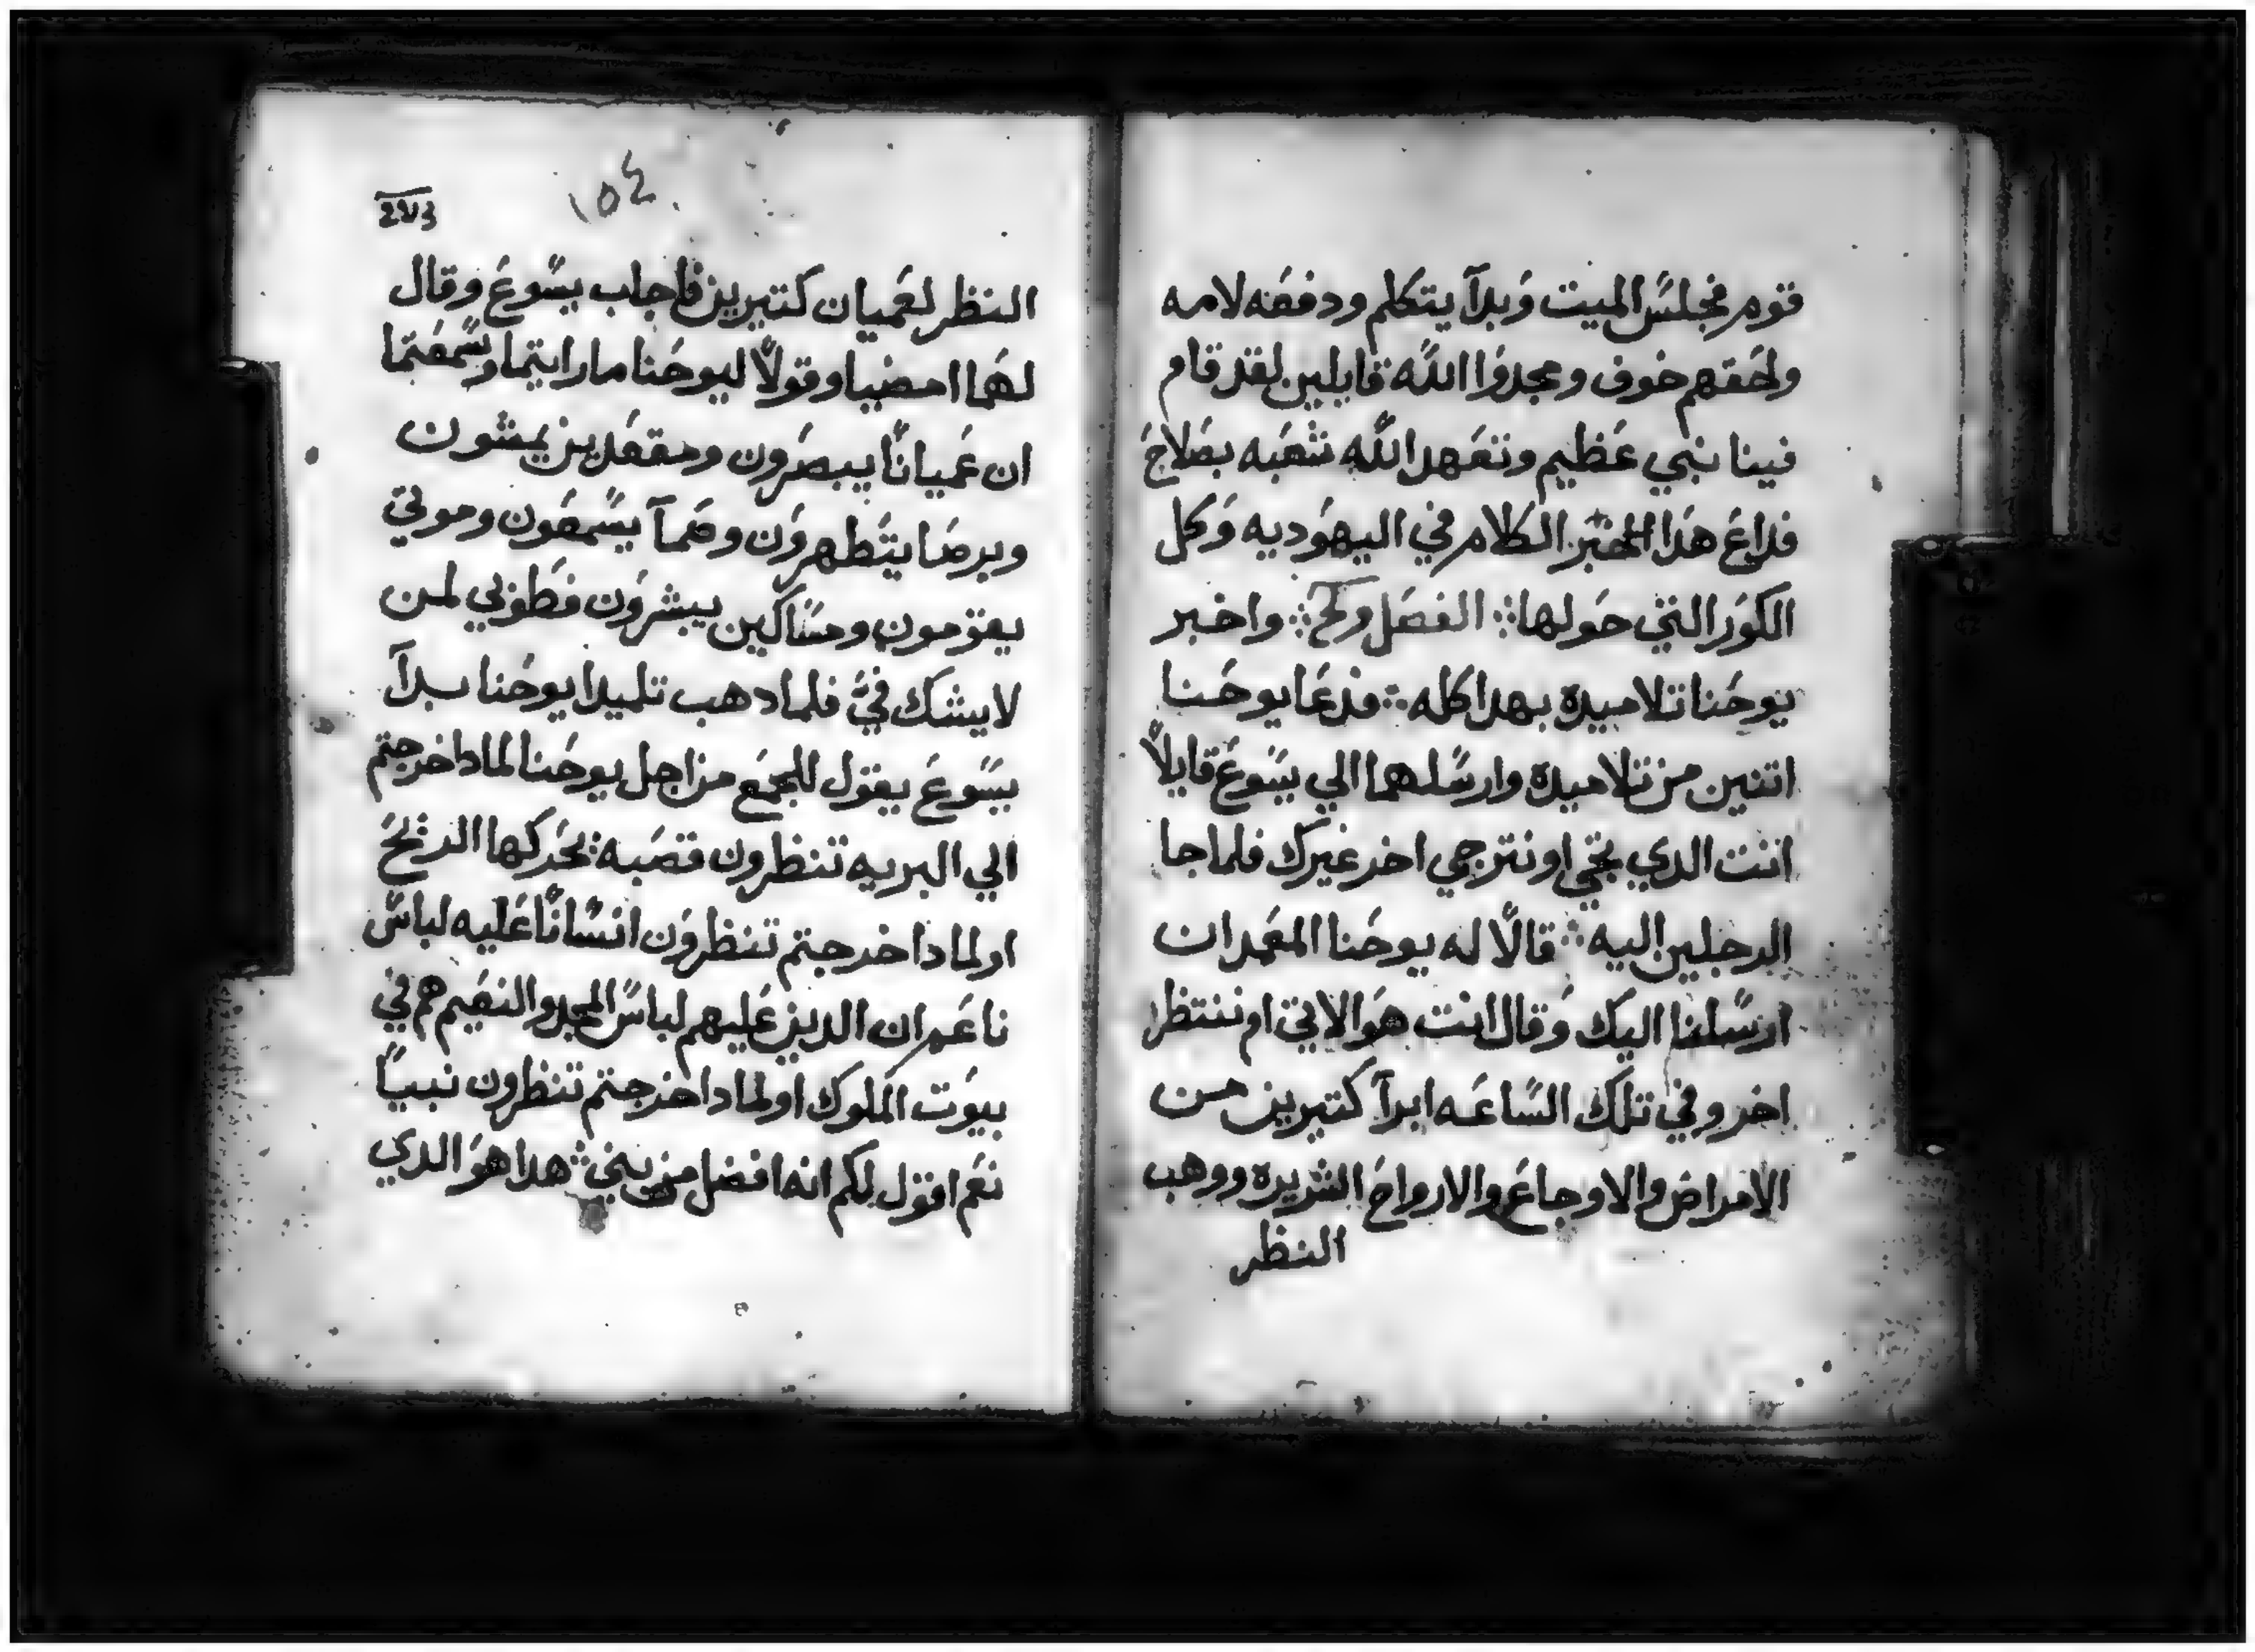 قوم فجلس الميت وبدآ يتكلم ودفعه لامه
ولحقهم خوف ومجدوا الله قايلين لقد قام
فينا نبي عظيم وتعهد الله شعبه بصلاح
فداع هدا الخبر الكلام في اليهوديه وكل
الكور التي حولها ⁘ الفصل ⁘ واخبر
يوحنا تلاميده بهدا كله ⁘ فدعا يوحنا
اتنين من تلاميده وارسلهما الي يسوع قايلاً
انت الدي يجي او نترجي اخر غيرك فلما جا
الرجلين اليه ⁘ قالا له يوحنا المعمدان
ارسلنا اليك وقال انت هو الاتي ام ننتظر
اخر وفي تلك الساعه ابرآ كتيرين من
الامراض والاوجاع والارواح الشريره ووهب
النظر
١٥٤
النظر لعميان كتيرين فاجاب يسوع وقال
لهما امضيا وقولاً ليوحنا ما رايتما وسمعتما
ان عمياناً يبصرون ومقعدين يمشون
وبرصا يتطهرون وصمآ يسمعون وموتي
يقومون ومساكين يبشرون فطوبي لمن
لا يشك فيَّ فلما دهب تلميدا يوحنا بدآ
يسوع يقول للجمع من اجل يوحنا لمادا خرجتم
الي البريه تنظرون قصبه تحركها الريح
او لمادا خرجتم تنظرون انساناً عليه لباس
ناعم ان الدين عليهم لباس المجد والنعيم هم في
بيوت الملوك او لمادا خرجتم تنظرون نبياً
نعم اقول لكم انه افضل من نبي ⁘ هدا هو الدي